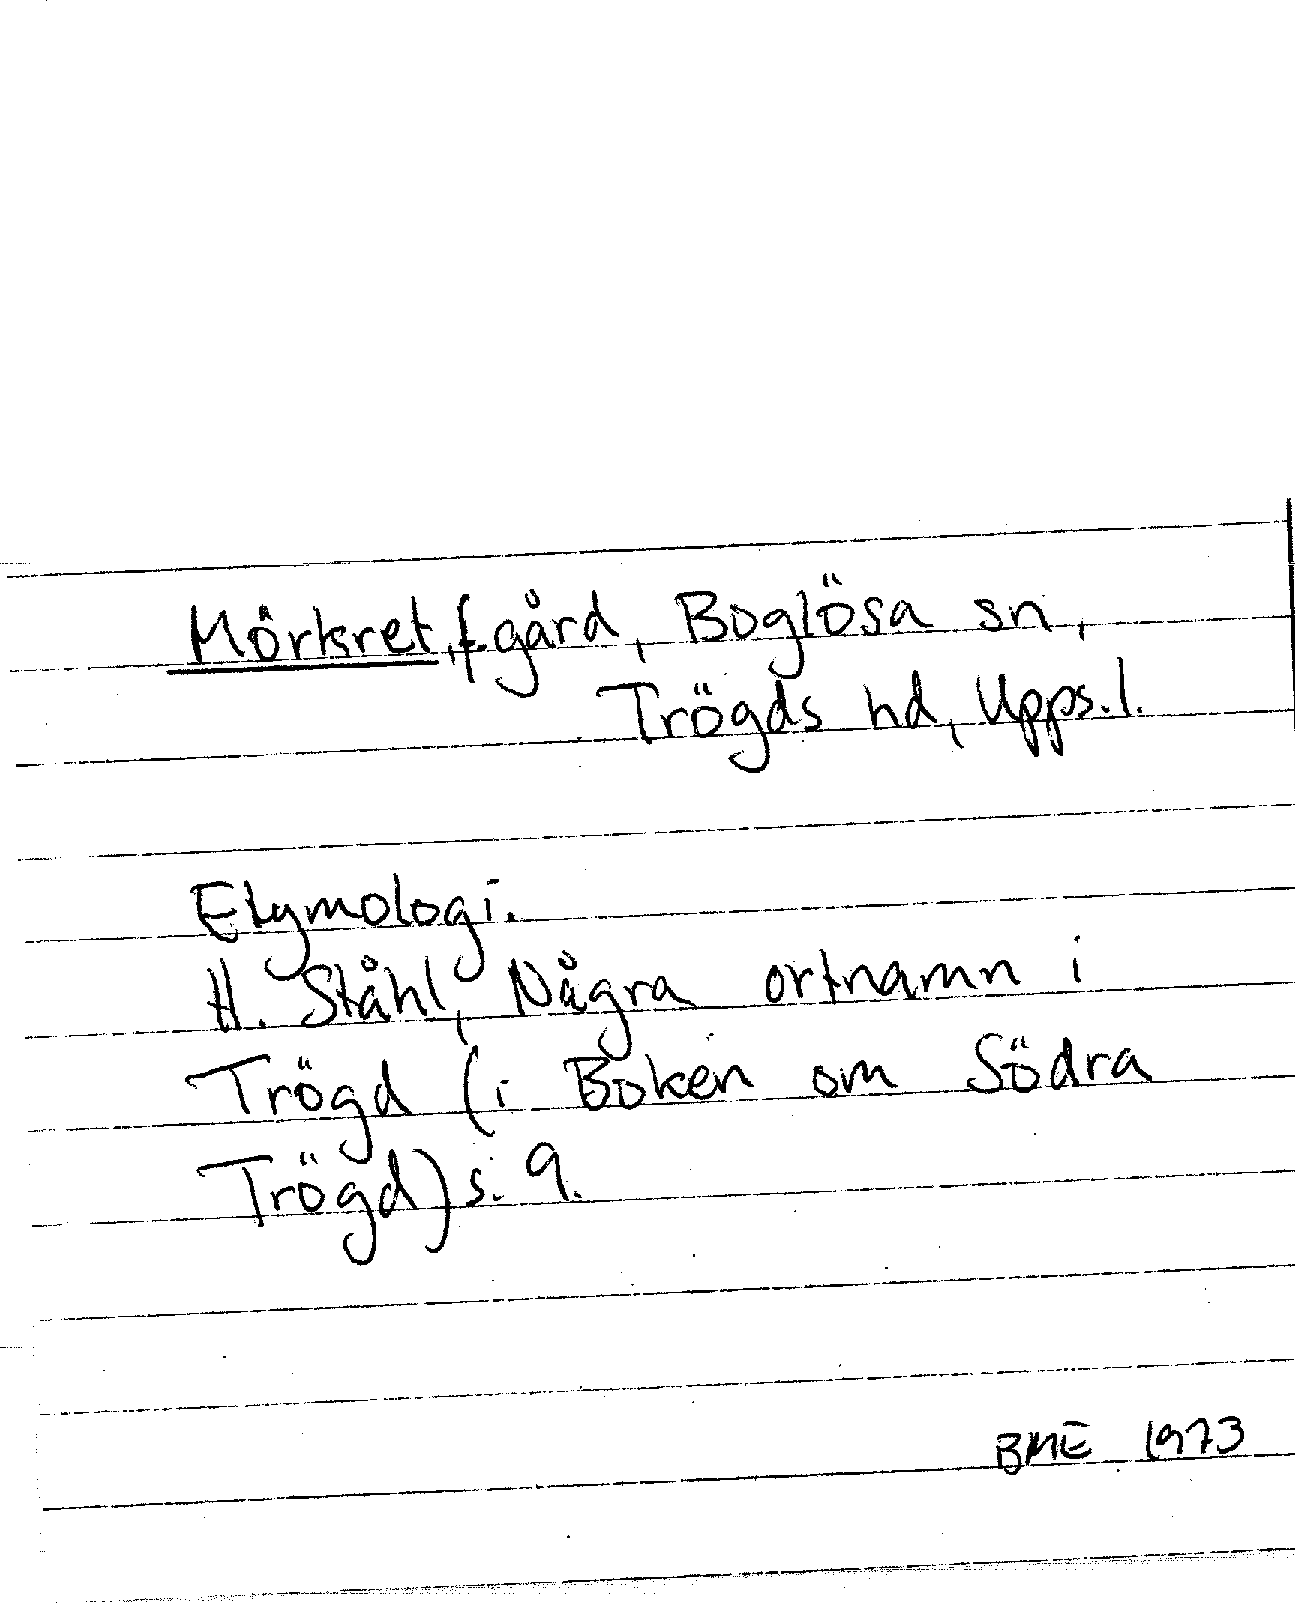 Mörkret, f. gård, Boglösa sn,
Trögds hd, Upps. l.
Etymologi.
H. Ståhl, Några ortnamn i
Trögd (i Boken om Södra
Trögd) s. 9.
BME 1973